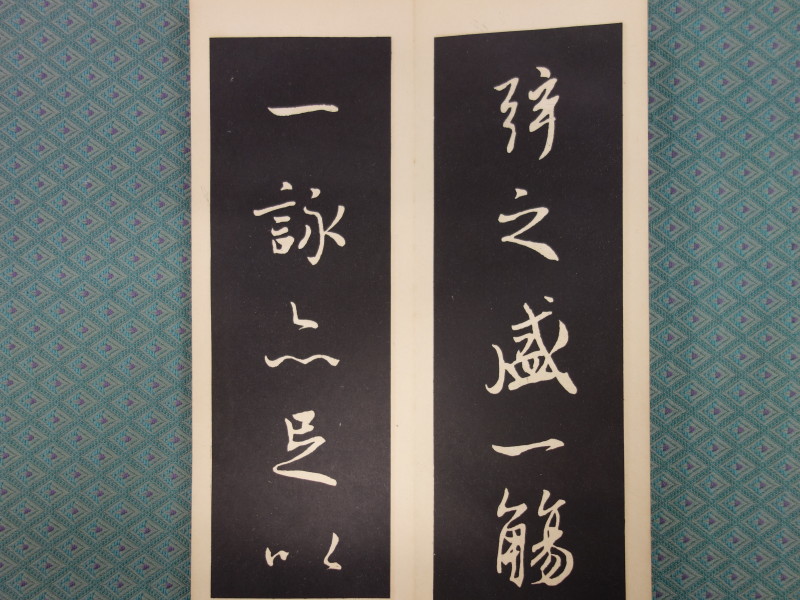 弦之盛一觴
一詠亦足以